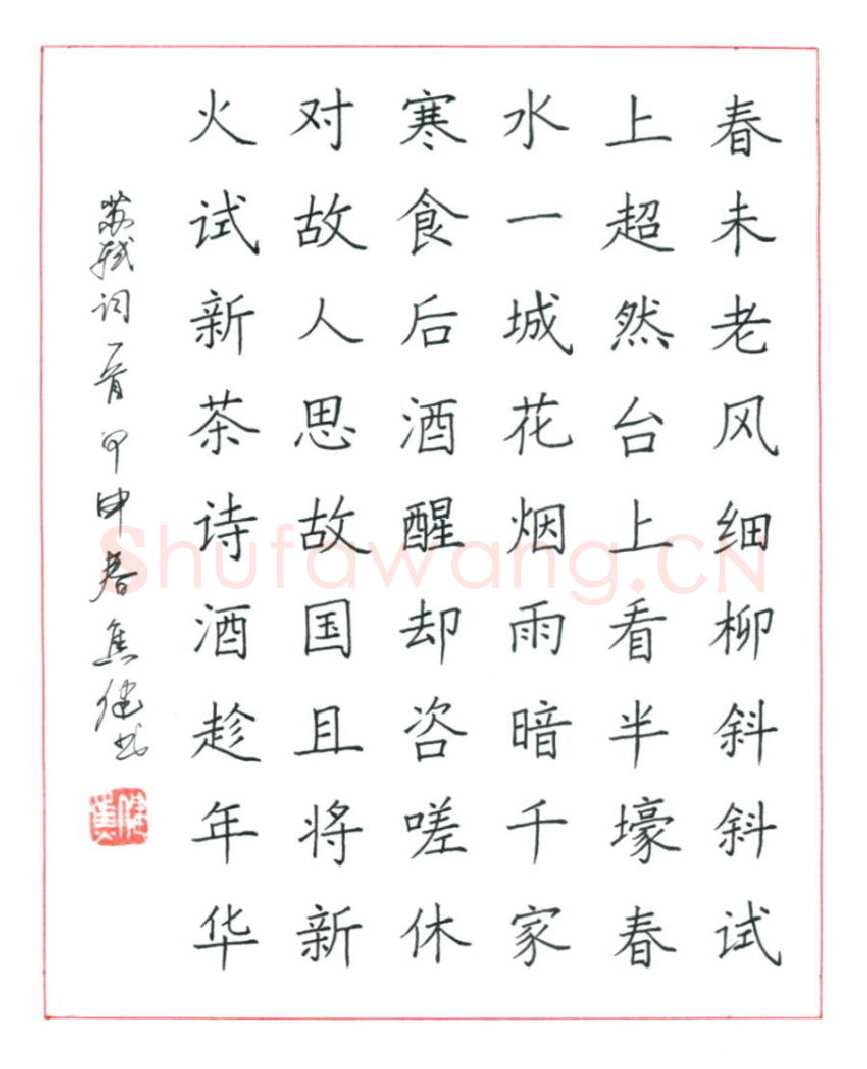 春未老风细柳斜斜试
上超然台上看半壕春
水一城花烟雨暗千家
寒食后酒醒却咨嗟休
对故人思故国且将新
火试新茶诗酒趁年华
苏轼词一首甲申春焦健书
Shufawang.CN